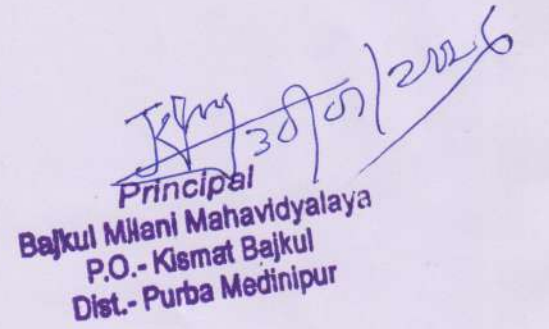 30/01/2026
Principal
Bajkul Milani Mahavidyalaya
P.O.- Kismat Bajkul
Dist.- Purba Medinipur